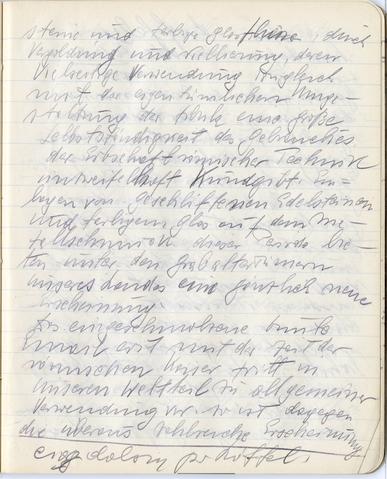 steine und farbige Glasflüsse, durch
Vergoldung und Niellierung, deren
vielseitige Verwendung zugleich
mit der eigentümlichen Umge-
staltung der Stücke eine große
Selbstständigkeit des Gebrauches
der Erbschaft römischer Technik
unzweifelhaft Kundgibt. Ein-
lagen von geschliffenen Edelsteinen
und farbigem Glas auf dem Me-
tallschmuck dieser Periode bie-
ten unter den Grabaltertümern
unseres Landes eine gänzlich neue
Erscheinung.
Das eingeschmolzene bunte
Email erst mit der Zeit der
römischen Kaiser tritt in
unseren Weltteil zu allgemeiner
Verwendung vor. so ist dagegen
die überaus zahlreiche Erscheinung